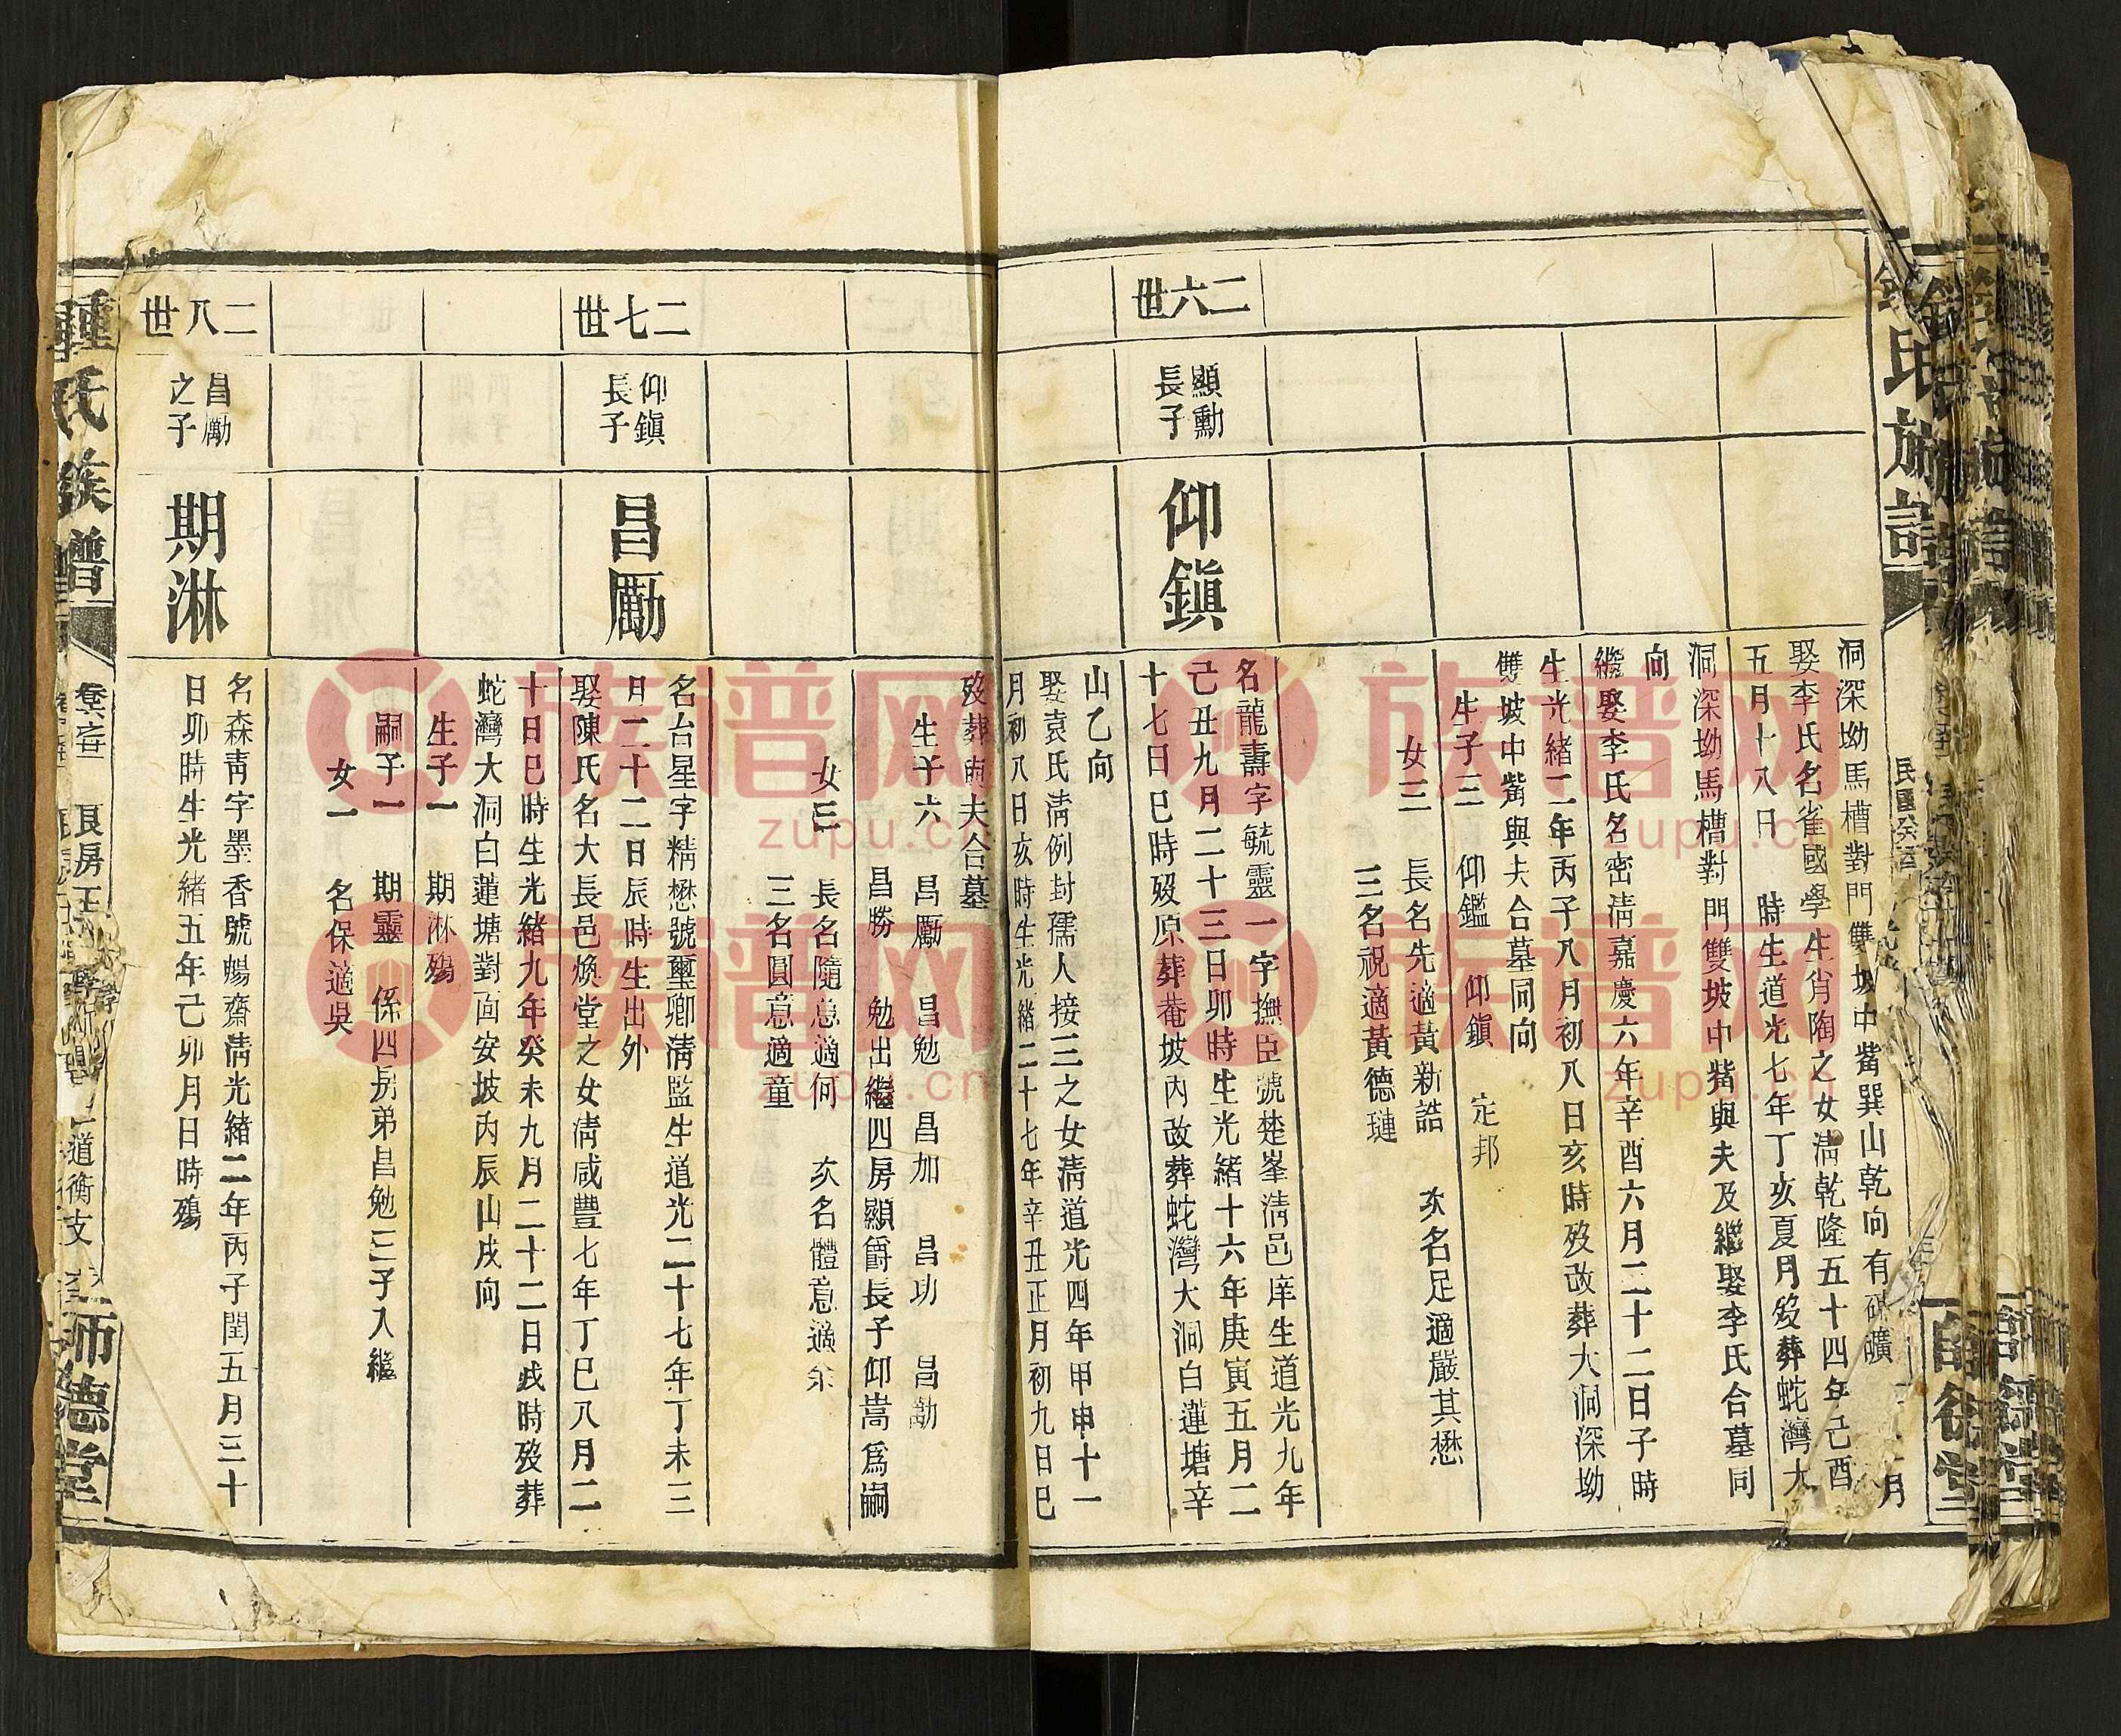 洞深坳馬槽對門雙坡中嘴巽山乾向有碑
娶李氏名雀國學生肖陶之女淸乾隆五十四年己酉
五月十八日　時生道光七年丁亥夏月歿葬蛇灣大
洞深坳馬槽對門雙坡中嘴與夫及繼娶李氏合墓同
向
繼娶李氏名密淸嘉慶六年辛酉六月二十二日子時
生光緒二年丙子八月初八日亥時歿改葬大洞深坳
雙坡中嘴與夫合墓同向
生子三　仰鑑　仰鎭　定邦
女三　長名先適黃新誥　次名足適嚴其懋
三名祝適黃德璉
二六世
顯勳
長子
仰鎭
名龍壽字毓靈一字撫臣號楚峯淸邑庠生道光九年
己丑九月二十三日卯時生光緒十六年庚寅五月二
十七日巳時歿原葬菴坡內改葬蛇灣大洞白蓮塘辛
山乙向
娶袁氏淸例封孺人接三之女淸道光四年甲申十一
月初八日亥時生光緒二十七年辛丑正月初九日巳
歿葬與夫合墓
生子六　昌勵　昌勉　昌加　昌功　昌勷
昌勝　勉出繼四房顯爵長子仰嵩爲嗣
女三　長名隨意適何　次名體意適余
三名圓意適童
二七世
仰鎭
長子
昌勵
名台星字精懋號璽卿淸監生道光二十七年丁未三
月二十二日辰時生出外
娶陳氏名大長邑煥堂之女淸咸豐七年丁巳八月二
十日巳時生光緒九年癸未九月二十二日戌時歿葬
蛇灣大洞白蓮塘對面安坡內辰山戌向
生子一　期淋殤
嗣子一　期靈　係四房弟昌勉三子入繼
女一　名保適吳
二八世
昌勵
之子
期淋
名森靑字墨香號暢齋淸光緒二年丙子閏五月三十
日卯時生光緒五年己卯月日時殤
鍾氏族譜
良房
道衡支
師德堂
族谱网
zupu.cn
族谱网
zupu.cn
族谱网
zupu.cn
族谱网
zupu.cn